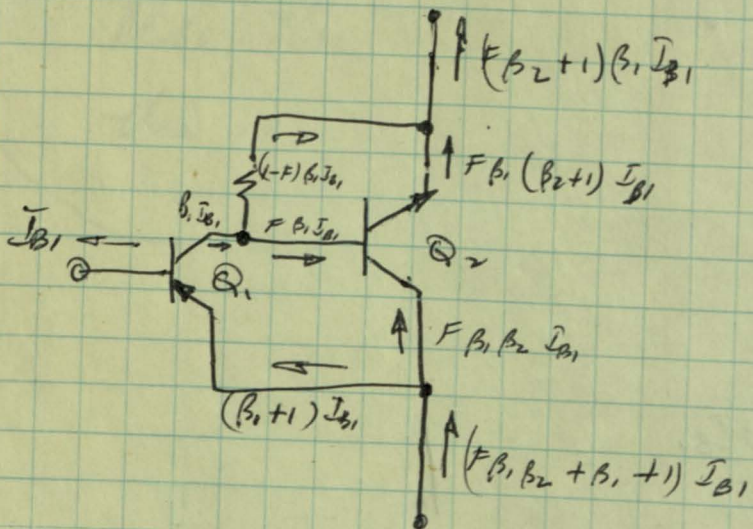 (Fβ₂+1)β₁ I_B1
(1-F)β₁I_B1
Fβ₁(β₂+1) I_B1
β₁I_B1
Fβ₁I_B1
I_B1
Q₁
Q₂
Fβ₁β₂ I_B1
(β₁+1) I_B1
(Fβ₁β₂ + β₁ + 1) I_B1